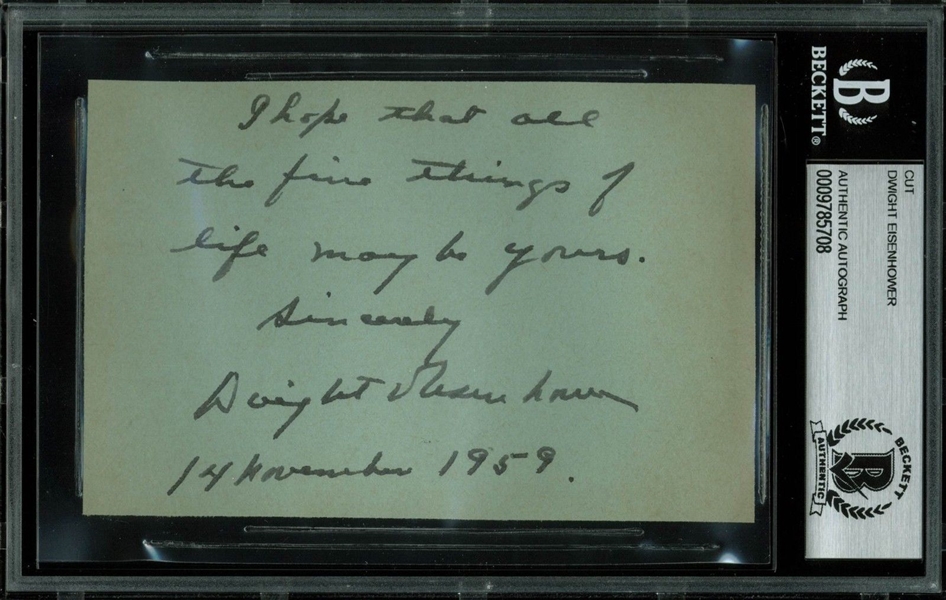 I hope that all
the fine things of
life may be yours.
Sincerely
Dwight Eisenhower
14 November 1959.
BECKETT®
CUT
DWIGHT EISENHOWER
AUTHENTIC AUTOGRAPH
0009785708
BECKETT
AUTHENTIC